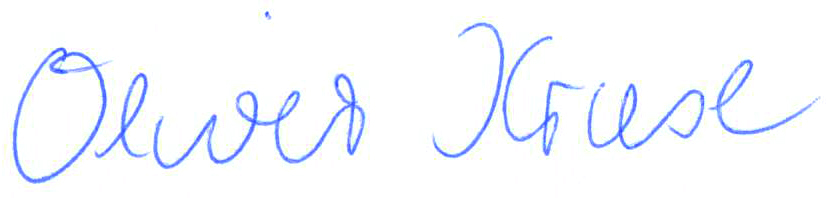 Oliver Kruse